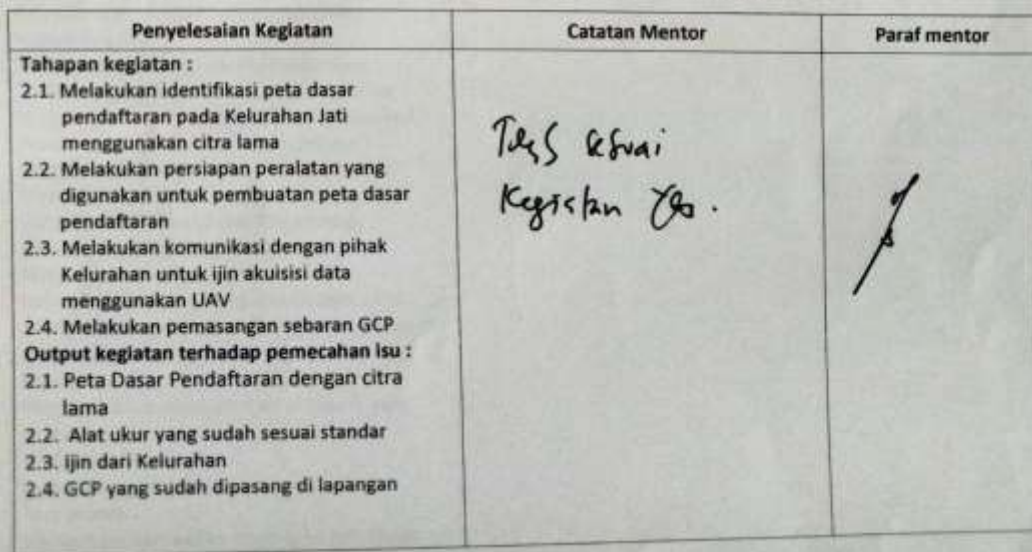 Penyelesaian Kegiatan
Catatan Mentor
Paraf mentor
Tahapan kegiatan :
2.1. Melakukan identifikasi peta dasar
pendaftaran pada Kelurahan Jati
menggunakan citra lama
2.2. Melakukan persiapan peralatan yang
digunakan untuk pembuatan peta dasar
pendaftaran
2.3. Melakukan komunikasi dengan pihak
Kelurahan untuk ijin akuisisi data
menggunakan UAV
2.4. Melakukan pemasangan sebaran GCP
Output kegiatan terhadap pemecahan isu :
2.1. Peta Dasar Pendaftaran dengan citra
lama
2.2. Alat ukur yang sudah sesuai standar
2.3. ijin dari Kelurahan
2.4. GCP yang sudah dipasang di lapangan
sesuai
Kegiatan